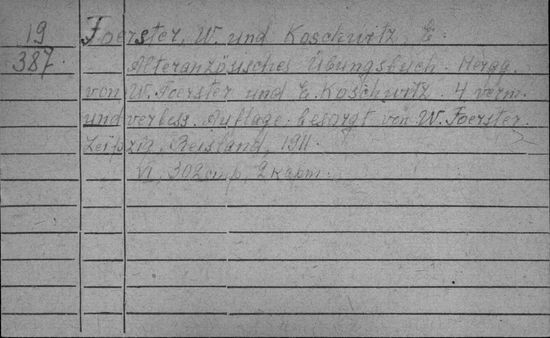 19 Foerster, W. und Koschwitz, E.
387. Alteranzösisches Übungsbuch. Hergg.
von W. Foerster und E. Koschwitz. 4 verm.
und verbess. Auflage besorgt von W. Foerster.
Leipzig, Reisland, 1911.
VI, 302 стр, 2 карт.